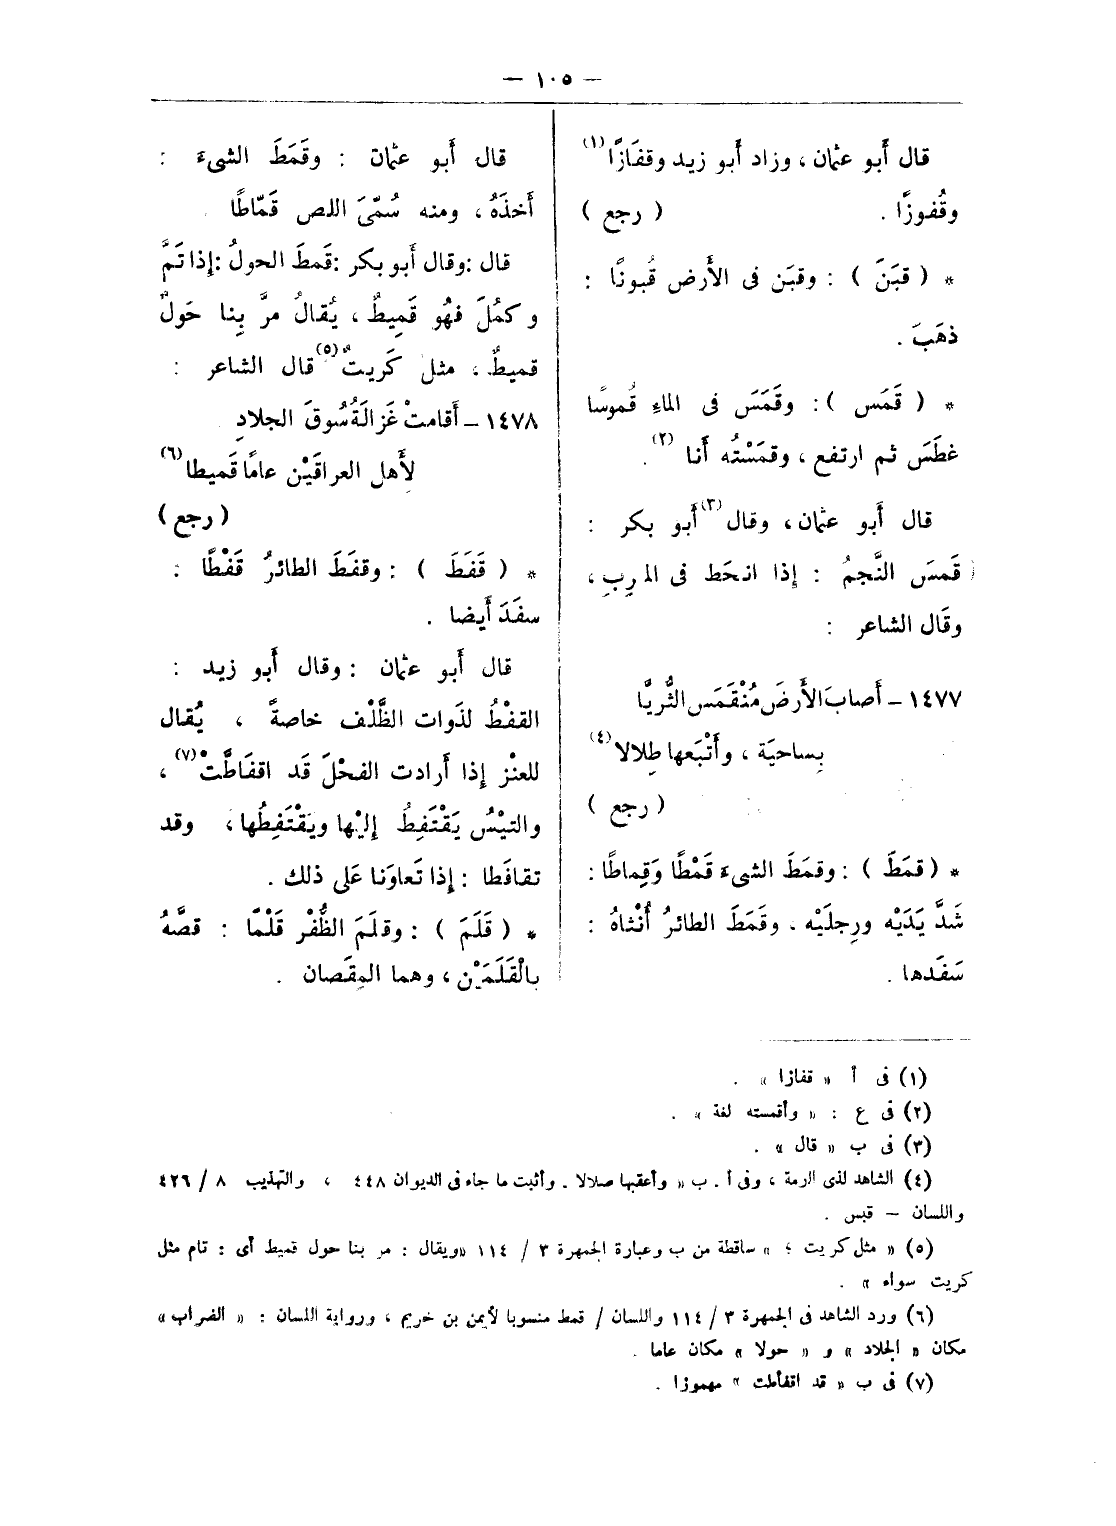 — ١٠٥ —
قال أَبو عثمان ، وزاد أَبو زيد وقفَازًا (١)
وقُفوزًا . ( رجع )
* ( قبَنَ ) : وقبَن فى الأَرض قُبونًا :
ذهَبَ .
* ( قَمَس ) : وقَمَسَ فى الماءِ قُموسًا
غطَسَ ثم ارتفع ، وقمَسْتُه أَنا (٢) .
قال أَبو عثمان ، وقال (٣) أَبو بكر :
قَمسَ النَّجمُ : إِذا انحَط فى المرِبِ ،
وقَال الشاعر :
١٤٧٧ – أَصابَ الأَرضَ مُنْقَمَس الثُّريَّا
بِساحيَة ، وأَتْبَعها طِلالا (٤)
( رجع )
* ( قمَطَ ) : وقمَطَ الشىءَ قَمْطًا وَقِماطًا :
شَدَّ يَدَيْه ورِجلَيْه . وقَمَطَ الطائرُ أُنْثاهُ :
سَفَدها .
قال أَبو عثمان : وقَمَطَ الشىءَ :
أَخذَهُ ، ومنه سُمِّىَ اللص قَمّاطًا .
قال : وقال أَبو بكر : قَمطَ الحولُ : إِذا تَمَّ
وكمُلَ فهُو قَمِيطٌ ، يُقالُ مرَّ بِنا حَولٌ
قميطٌ ، مثل كَرِيتٌ (٥) قال الشاعر :
١٤٧٨ – أَقامتْ غَزالَةُ سُوقَ الجلادِ
لأَهل العراقَيْن عامًا قَميطا (٦)
( رجع )
* ( قَفَطَ ) : وقفَطَ الطائرُ قَفْطًا :
سفَدَ أَيضا .
قال أَبو عثمان : وقال أَبو زيد :
القفْطُ لذَوات الظِّلْف خاصةً ، يُقال
للعنْز إِذا أَرادت الفحْلَ قَد اقفَاطَّتْ (٧) ،
والتيْسُ يَقْتَفِطُ إِليْها ويَقْتَفِطُها ، وقد
تقافَطا : إِذا تَعاوَنا عَلى ذلك .
* ( قَلَمَ ) : وقلَمَ الظُّفْر قَلْمًا : قصَّهُ
بالْقَلَمَيْن ، وهما المِقَصان .
(١) فى أ « قفازا » .
(٢) فى ع : « وأقمسته لغة » .
(٣) فى ب « قال » .
(٤) الشاهد لذى الرمة ، وفى أ . ب « وأعقبها صلالا . وأثبت ما جاء فى الديوان ٤٤٨ ، والتهذيب ٨ / ٤٢٦
واللسان – قبس .
(٥) « مثل كريت ؛ » ساقطة من ب وعبارة الجمهرة ٣ / ١١٤ « ويقال : مر بنا حول قميط أى : تام مثل
كريت سواء » .
(٦) ورد الشاهد فى الجمهرة ٣ / ١١٤ واللسان / قمط منسوبا لأيمن بن خريم ، ورواية اللسان : « الضراب »
مكان « الجلاد » و « حولا » مكان عاما .
(٧) فى ب « قد اقفأطت » مهموزا .